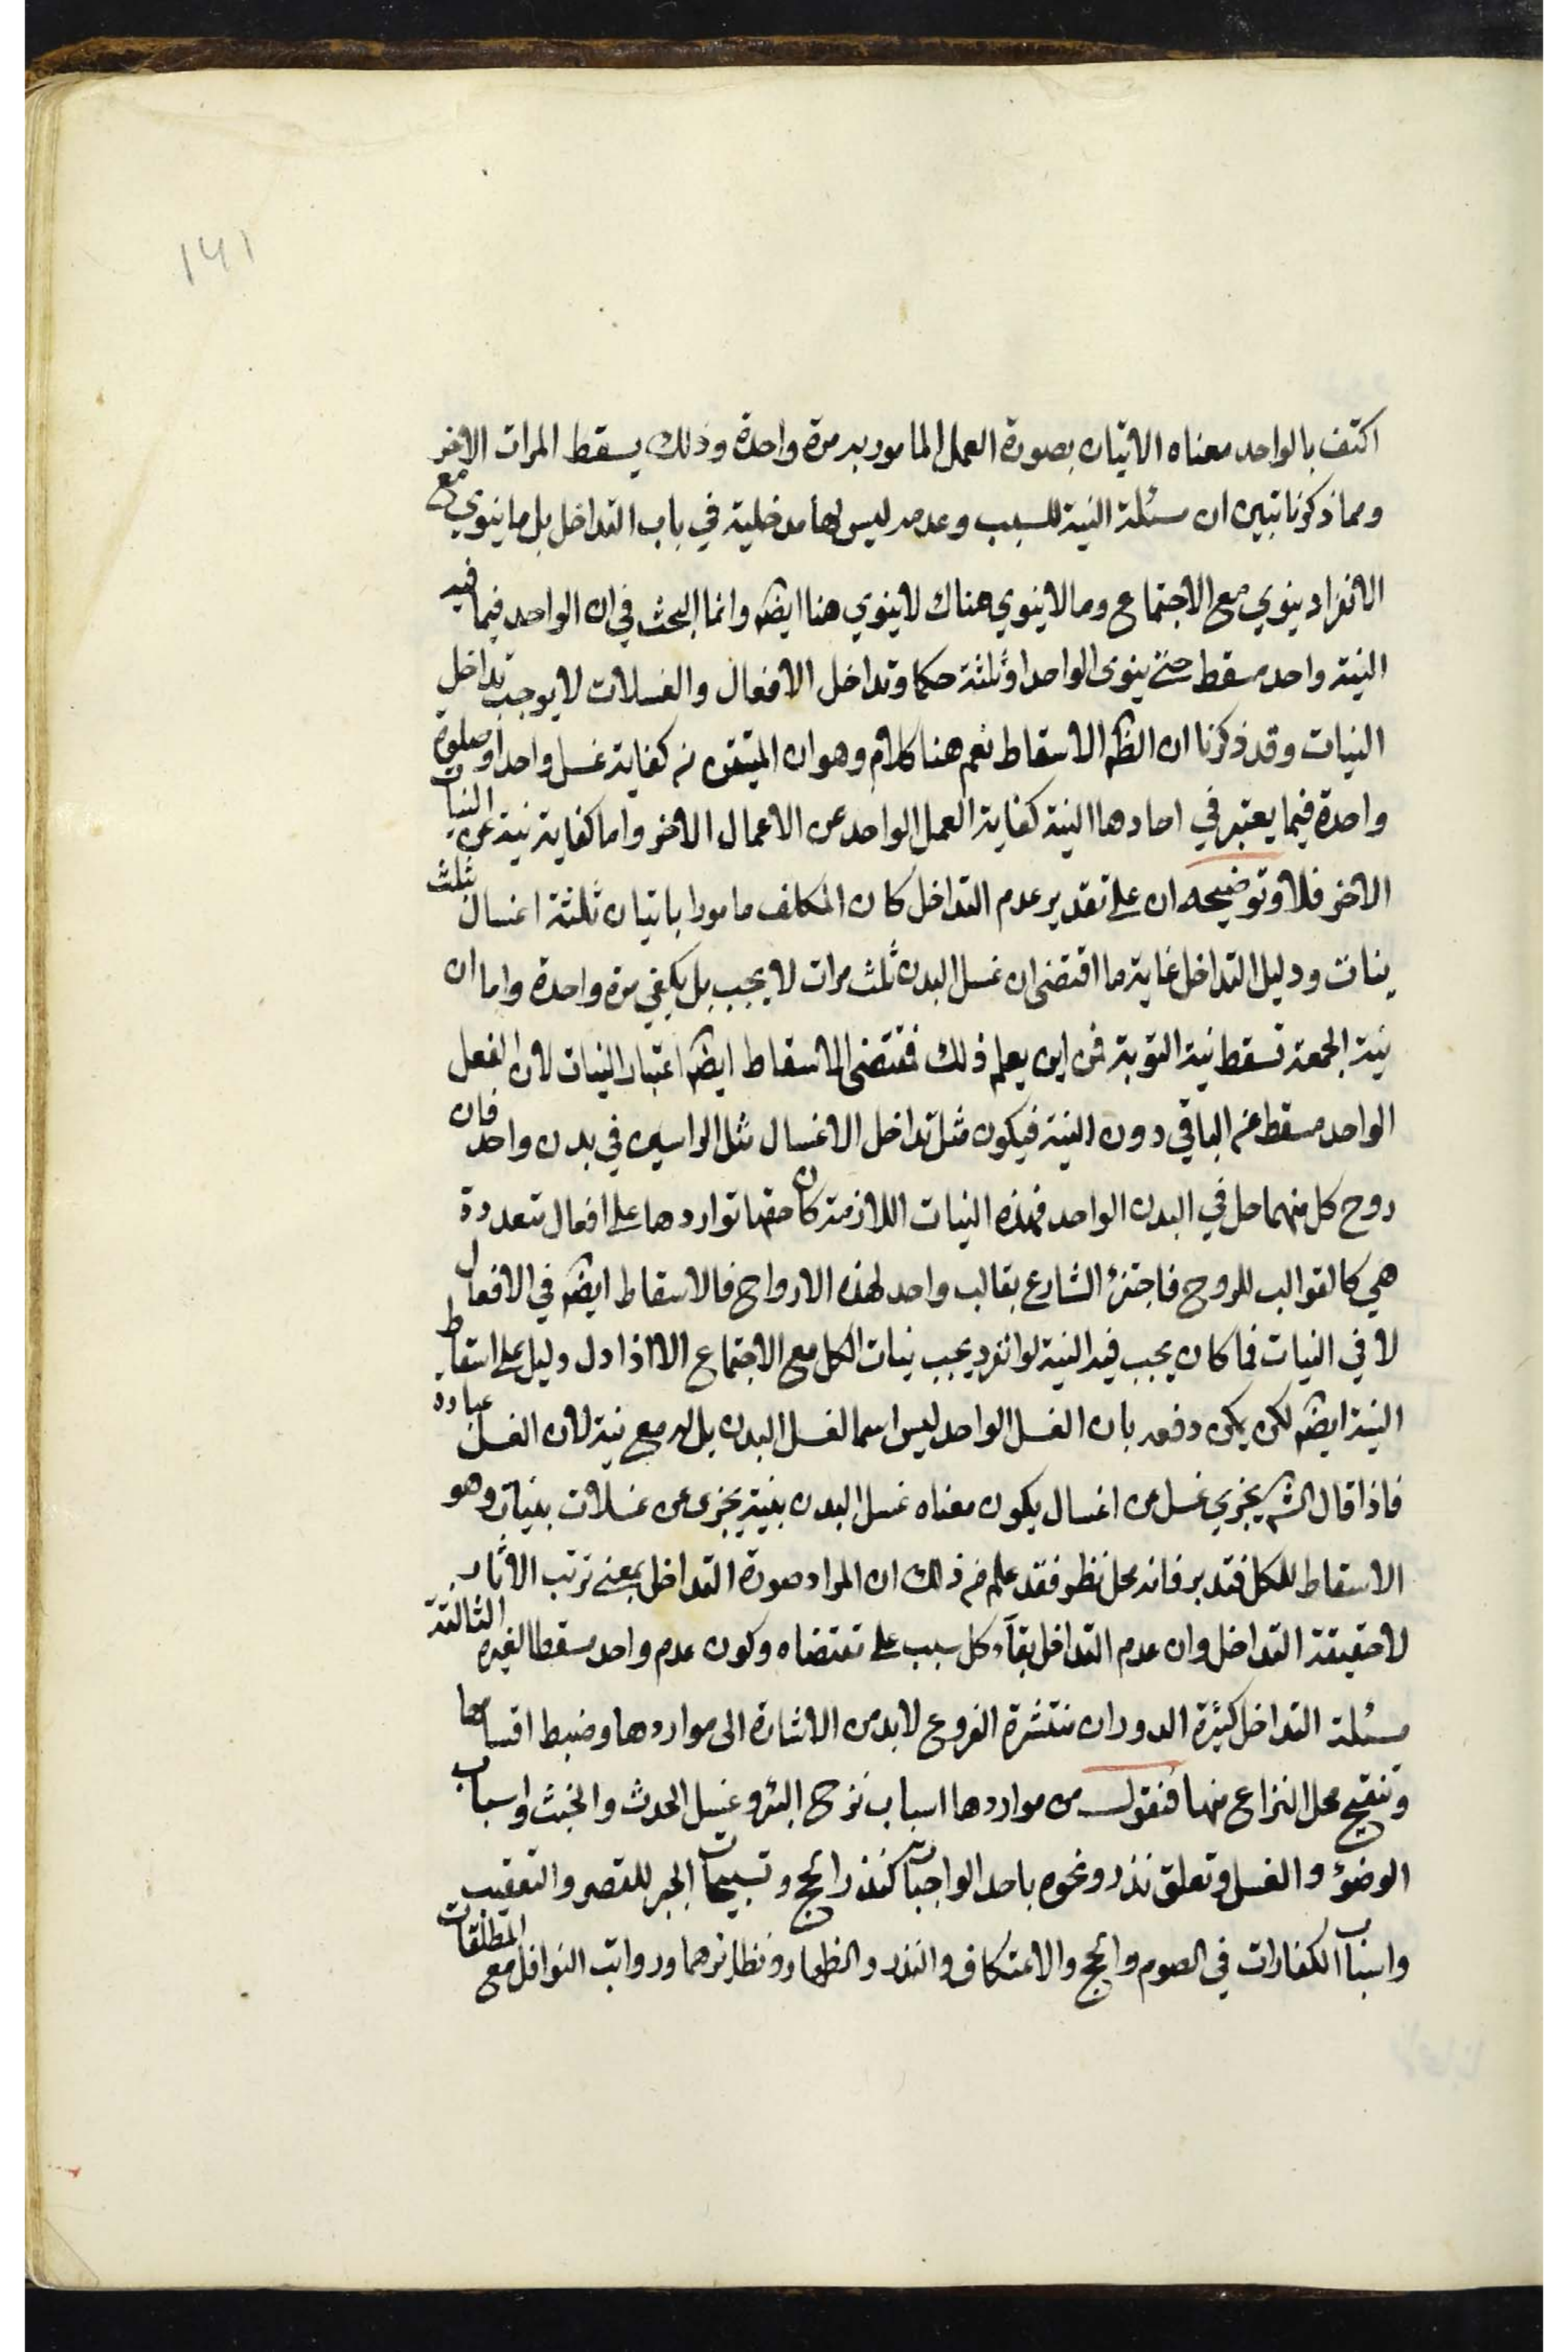 ١٤١
اكتف بالواحد معناه الاتيان بصورة العمل المامور به مرة واحدة وذلك يسقط المرات الاخر
ومما ذكرنا تبين ان مسئلة النية للسبب وعدمه ليس لها مدخلية في باب التداخل بل ما ينوي مع
الانفراد ينوي مع الاجتماع وما لا ينوي هناك لا ينوي هنا ايضه وانما البحث في ان الواحد فيما فيه
النية واحد مسقط حتى ينوى الواحد او ثلثة حكما وتداخل الافعال والغسلات لا يوجب تداخل
النيات وقد ذكرنا ان الظه الاسقاط نعم هنا كلام وهو ان المتيقن من كفاية غسل واحد او صلوة
واحدة فيما يعتبر في احادها النية كفاية العمل الواحد عن الاعمال الاخر واما كفاية نية عن النيات
الاخر فلا وتوضيحه ان على تقدير عدم التداخل كان المكلف مامورا باتيان ثلثة اغسال بثلث
نيات ودليل التداخل غاية ما اقتضى ان غسل البدن ثلث مرات لا يجب بل يكفي مرة واحدة واما ان
نية الجمعة تسقط نية التوبة فمن اين يعلم ذلك فمقتضى الاسقاط ايضه اعتبار النيات لان الفعل
الواحد مسقط عن الباقي دون النية فيكون مثل تداخل الاغسال مثل الراسين في بدن واحد فان
روح كل منهما حل في البدن الواحد فهذه النيات اللازمة كان حقها تواردها على افعال متعددة
هي كالقوالب للروح فاجتزئ الشارع بقالب واحد لهذه الارواح فالاسقاط ايضه في الافعال
لا في النيات فما كان يجب فيه النية لو انفرد يجب نيات الكل مع الاجتماع الا اذا دل دليل على اسقاط
النية ايضه لكن يمكن دفعه بان الغسل الواحد ليس اسما لغسل البدن بل له مع نية لان الغسل عبادة
فاذا قال الشه يجزي غسل عن اغسال يكون معناه غسل البدن بنية يجزى عن غسلات بنيات وهو
الاسقاط للكل فتدبر فانه محل نظر فقد علم من ذلك ان المراد صورة التداخل بمعنى ترتب الاثار
لا حقيقة التداخل وان عدم التداخل بقآء كل سبب على مقتضاه وكون عدم واحد مسقطا لغيره الثالثة
مسئلة التداخل كثيرة الدوران منتشرة الفروع لابد من الاشارة الى مواردها وضبط اقسامها
وتنقيح محل النزاع منها فنقول من مواردها اسباب نزح البئر وغسل الحدث والخبث واسباب
الوضوء والغسل وتعلق نذر ونحوه باحد الواجبات كنذر الحج وتسبيحات الجبر للقصر والتعقيب
واسباب الكفارات في الصوم والحج والاعتكاف والنذر والظهار ونظائرهما ورواتب النوافل مع المطلقات